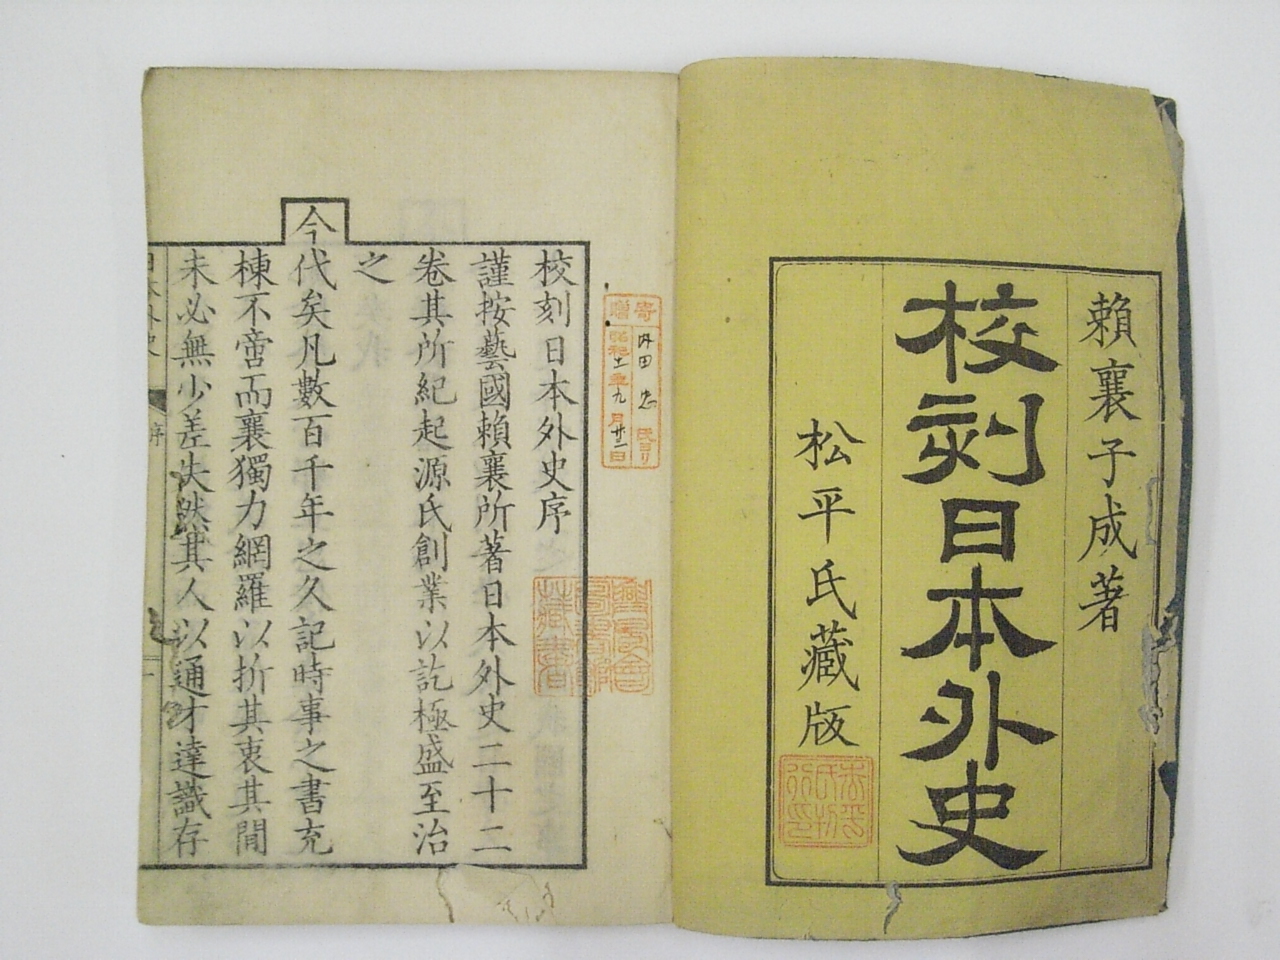 賴襄子成著
校刻日本外史
松平氏藏版
寄贈
内田忠氏ヨリ
昭和十一年九月廿二日
校刻日本外史序
謹按藝國賴襄所著日本外史二十二
卷其所紀起源氏創業以訖極盛至治
之
今代矣凡數百千年之久記時事之書充
棟不啻而襄獨力網羅以折其衷其間
未必無少差失然其人以通才達識存
日本外史 序